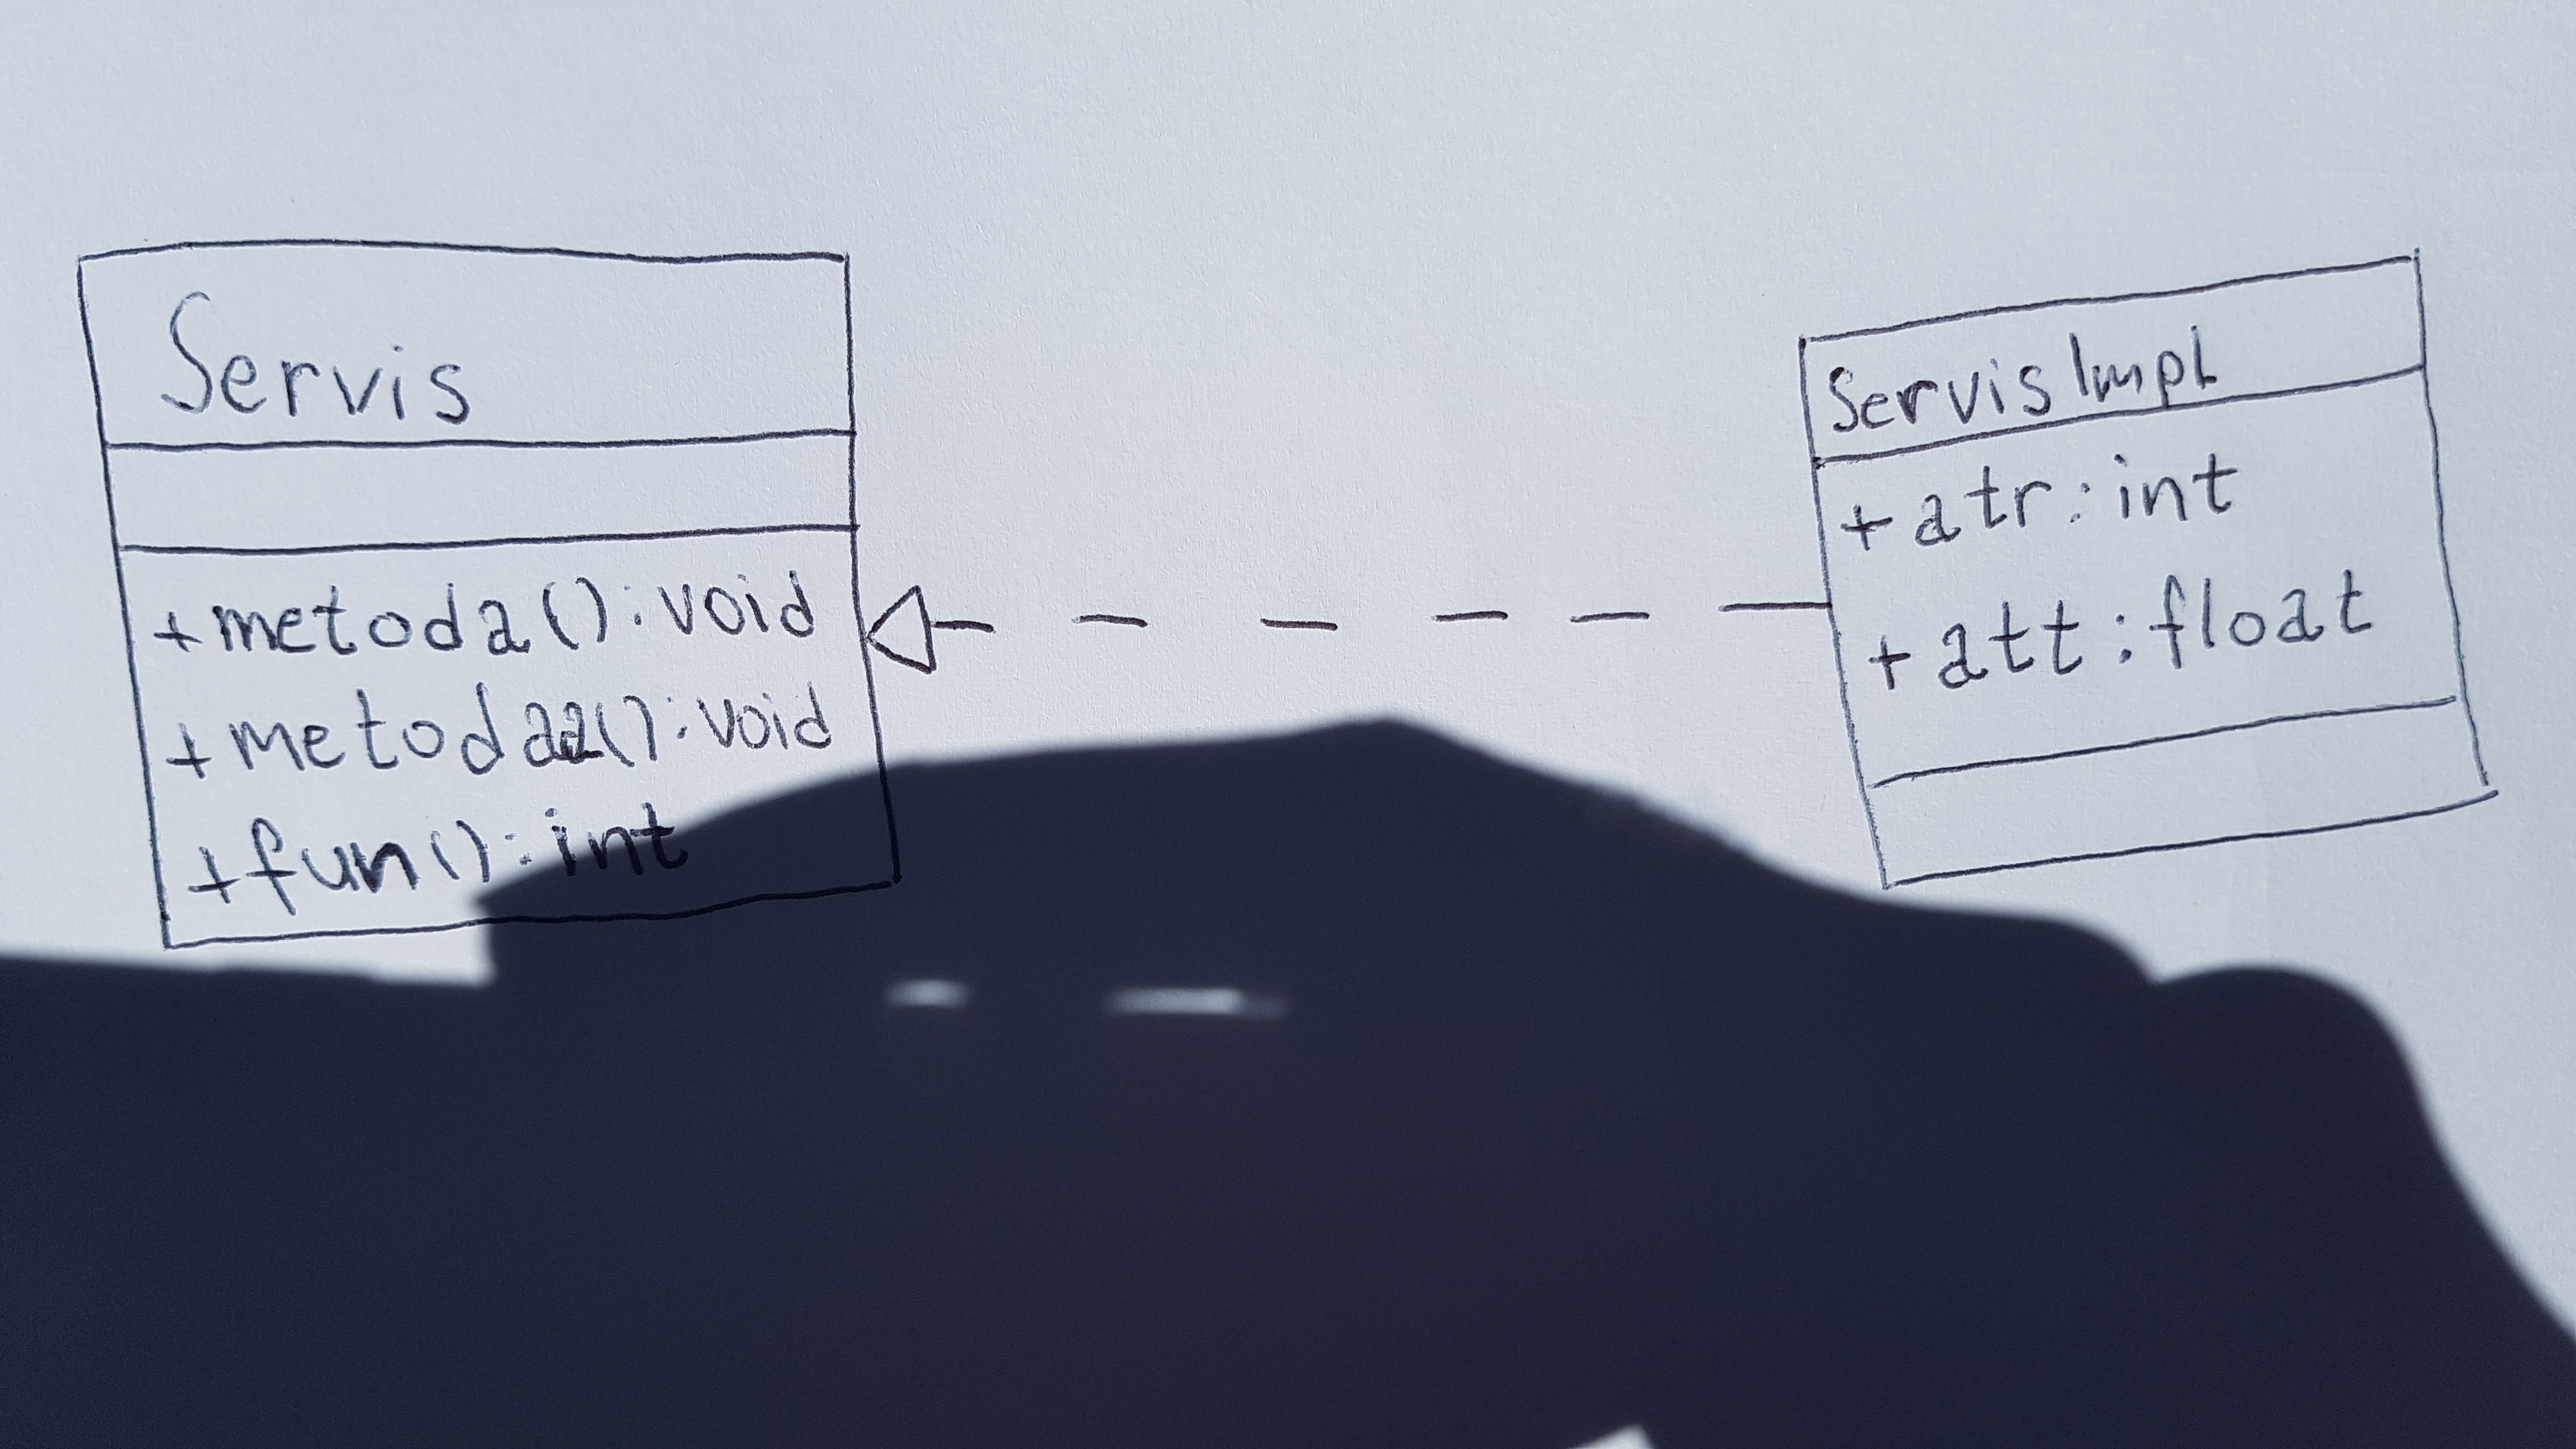 Servis
+metoda():void
+metodaa():void
+fun():int
ServisImpl
+atr:int
+att:float